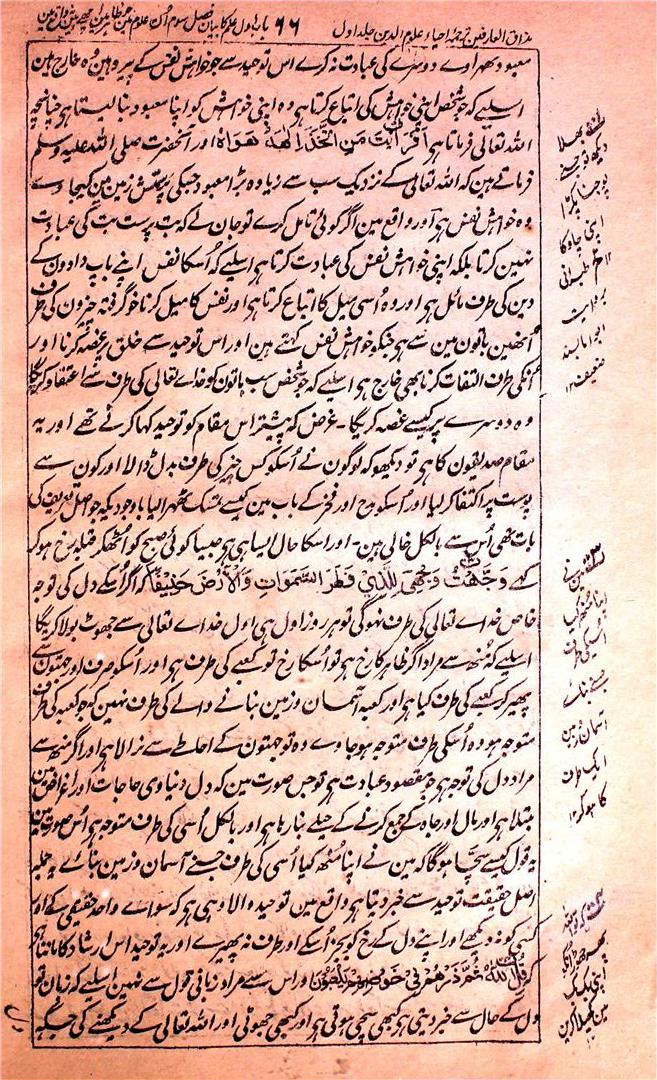 مذاق العارفین ترجمہ احیاء علوم الدین جلد اول ۶۶ باب اول علم کا بیان فصل سوم
معبود ٹھہراوے دوسرے کی عبادت نہ کرے اس توحید سے جو خواہش نفس کے پیرو ہین وہ خارج ہین
اسلیے کہ جو شخص اپنی خواہش کی اتباع کرتا ہو وہ اپنی خواہش کو اپنا معبود بنا لیتا ہو چنانچہ
اللہ تعالی فرماتا ہو اَفَرَاَیْتَ مَنِ اتَّخَذَ اِلٰهَهٗ هَوَاهُ اور آنحضرت صلی اللہ علیہ وسلم
فرماتے ہین کہ اللہ تعالی کے نزدیک سب سے زیادہ بڑا معبود جسکی پرستش زمین مین کیجاوے
وہ خواہش نفس ہو اور واقع مین اگر کوئی تامل کرے تو جان لے کہ بت پرست بت کی عبادت
نہین کرتا بلکہ اپنی خواہش نفس کی عبادت کرتا ہو اسلیے کہ اُسکا نفس اپنے باپ دادون کے
دین کی طرف مائل ہو اور وہ اُسی میل کا اتباع کرتا ہو اور نفس کا میل کرنا خوگرفتہ چیزون کی طرف
اُنھین باتون مین سے ہو جنکو خواہش نفس کہتے ہین اور اس توحید سے خلق پر غصہ کرنا اور
اُنکی طرف التفات کرنا بھی خارج ہو اسلیے کہ جو شخص سب باتون کو خداے تعالی کی طرف سے اعتقاد کریگا
وہ دوسرے پر کیسے غصہ کریگا۔ غرض کہ پیشتر اس مقام کو توحید کہا کرتے تھے اور یہ
مقام صدیقون کا ہو تو دیکھو کہ لوگون نے اُسکو کس چیز کی طرف بدل ڈالا اور کون سے
پوست پر اکتفا کر لیا اور اُسکو مدح اور فخر کے باب مین کیسے تمسک ٹھہرا لیا باوجودیکہ جو اصل تعریف کی
بات تھی اُس سے بالکل خالی ہین۔ اور اسکا حال ایسا ہی ہو جیسا کوئی صبح کو اُٹھکر قبلہ رخ ہو کر
کہے وَجَّهْتُ وَجْهِیَ لِلَّذِیْ فَطَرَ السَّمٰوَاتِ وَالْاَرْضَ حَنِیْفًا کہ اگر اُسکے دل کی توجہ
خاص خداے تعالی کی طرف نہوگی تو ہر روز اول ہی اول خداے تعالی سے جھوٹ بولا کریگا
اسلیے کہ مُنھ سے مراد اگر ظاہر کا رخ ہو تو اُسکا رخ تو کعبے کی طرف ہو اور اُسکو صرف اور جہتون سے
پھیر کر کعبے کی طرف کیا ہو اور کعبہ آسمان و زمین بنانے والے کی طرف نہین کہ جو کعبہ کی طرف
متوجہ ہو وہ اُسکی طرف متوجہ ہو جاوے وہ تو جہتون کے احاطے سے نرالا ہو اور اگر منھ سے
مراد دل کی توجہ ہو جو مقصود عبادت ہو تو جس صورت مین کہ دل دنیاوی حاجات اور اغراض مین
مبتلا ہو اور مال اور جاہ کے جمع کرنے کے حیلے بنا رہا ہو اور بالکل اُسی کی طرف متوجہ ہو اُس صورت مین
یہ قول کیسے سچا ہوگا کہ مین نے اپنا مُنھ کیا اُسی کی طرف جسنے آسمان و زمین بنائے یہ جملہ
اصل حقیقت توحید سے خبر دیتا ہو واقع مین توحید والا وہی ہو کہ سواے واحد حقیقی کے اور
کسی کو نہ دیکھے اور اپنے دل کے رخ کو بجز اُسکے اور طرف نہ پھیرے اور یہ توحید اس ارشاد کا ماننا ہو
کہ قُلِ اللّٰهُ ثُمَّ ذَرْهُمْ فِیْ خَوْضِهِمْ یَلْعَبُوْنَ اور اس سے مراد زبانی قول سے نہین اسلیے کہ زبان تو
دل کے حال سے خبر دیتی ہو کبھی سچی ہوتی ہو اور کبھی جھوٹی اور اللہ تعالی کے دیکھنے کی جگہ
بھلا
دیکھ تو جسنے
پوجنا پکڑا
اپنی چاو کا
طبرانی
بروایت
ابو امامہ بسند
ضعیف ۱۲
مین نے
اپنا منھ کیا
اُسی کی طرف
جسنے بنائے
آسمان و زمین
ایک طرف
کا ہو کر ۱۲
تو کہہ اللہ
پھر چھوڑ انکو
اپنی بک بک
مین کھیلا کرین